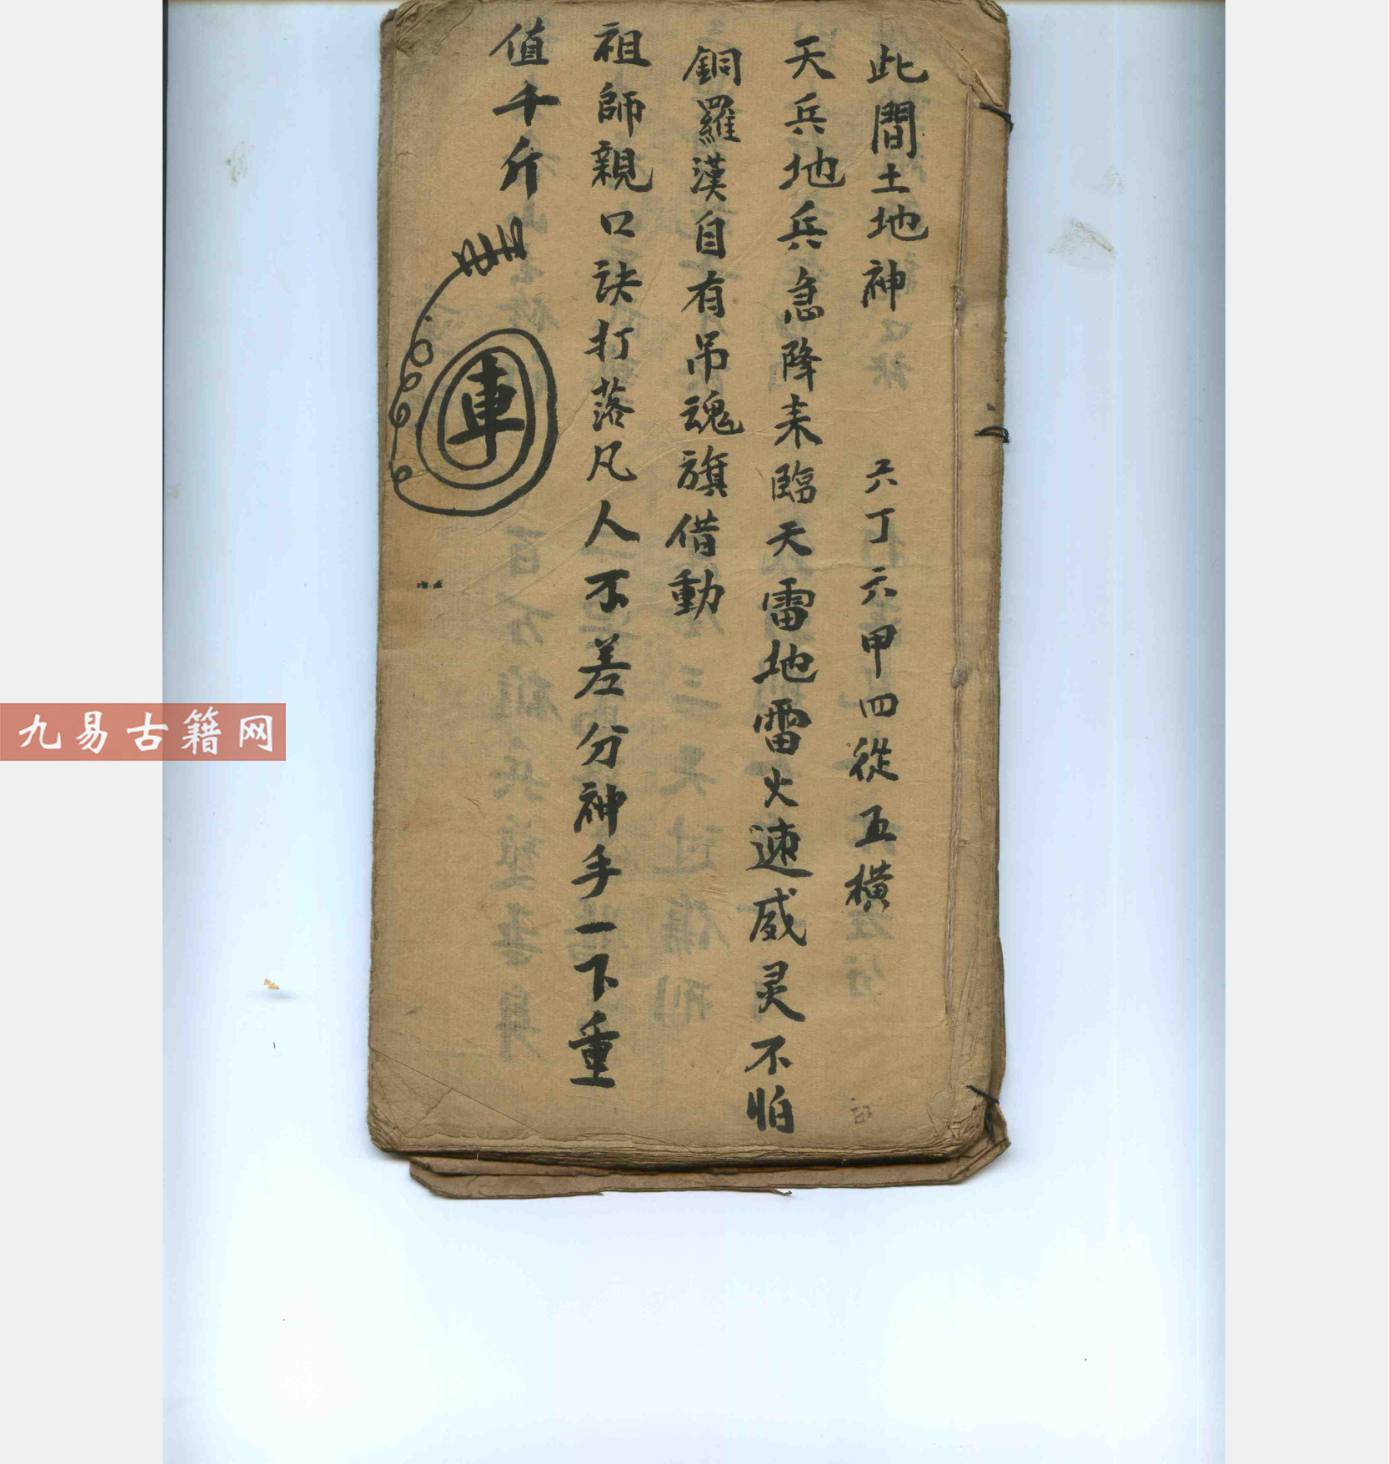 此間土地神 六丁六甲四從五橫
天兵地兵急降来臨天雷地雷火速威灵不怕
銅羅漢自有吊魂旗借動
祖師親口訣打落凡人不差分神手一下重
值千斤
車
九易古籍网